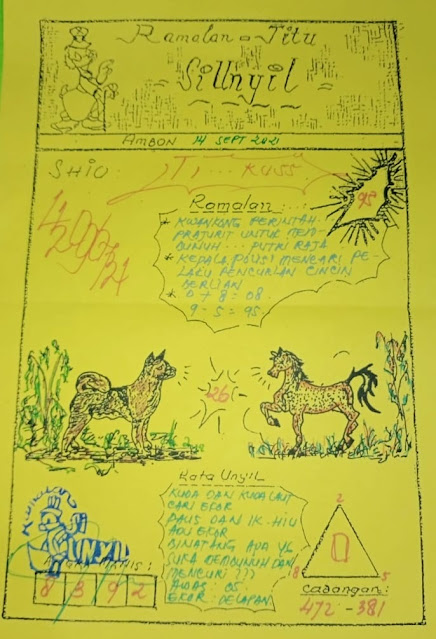 Ramalan - Jitu
SiUnyil
AMBON 14 SEPT 2021
SHIO :
98
Ramalan :
* KWANKONG PERINTAH
PRAJURIT UNTUK MEM-
BUNUH... PUTRI RAJA
* KEPALA POLISI MENCARI PE-
LAKU PENCURIAN CINCIN
BERLIAN
* 0 + 8 = 08
9 - 5 = 95
26
Kata Unyil
KUDA DAN KUDA LAUT
CARI EKOR
PAUS DAN IK. HIU
ADU EKOR
BINATANG APA YG
SUKA MEMBUNUH DAN
MENCURI ???
AWAS : 05
EKOR : DELAPAN
UNYIL
8 3 9 2
2
0
8 5
Cadangan :
472 - 381